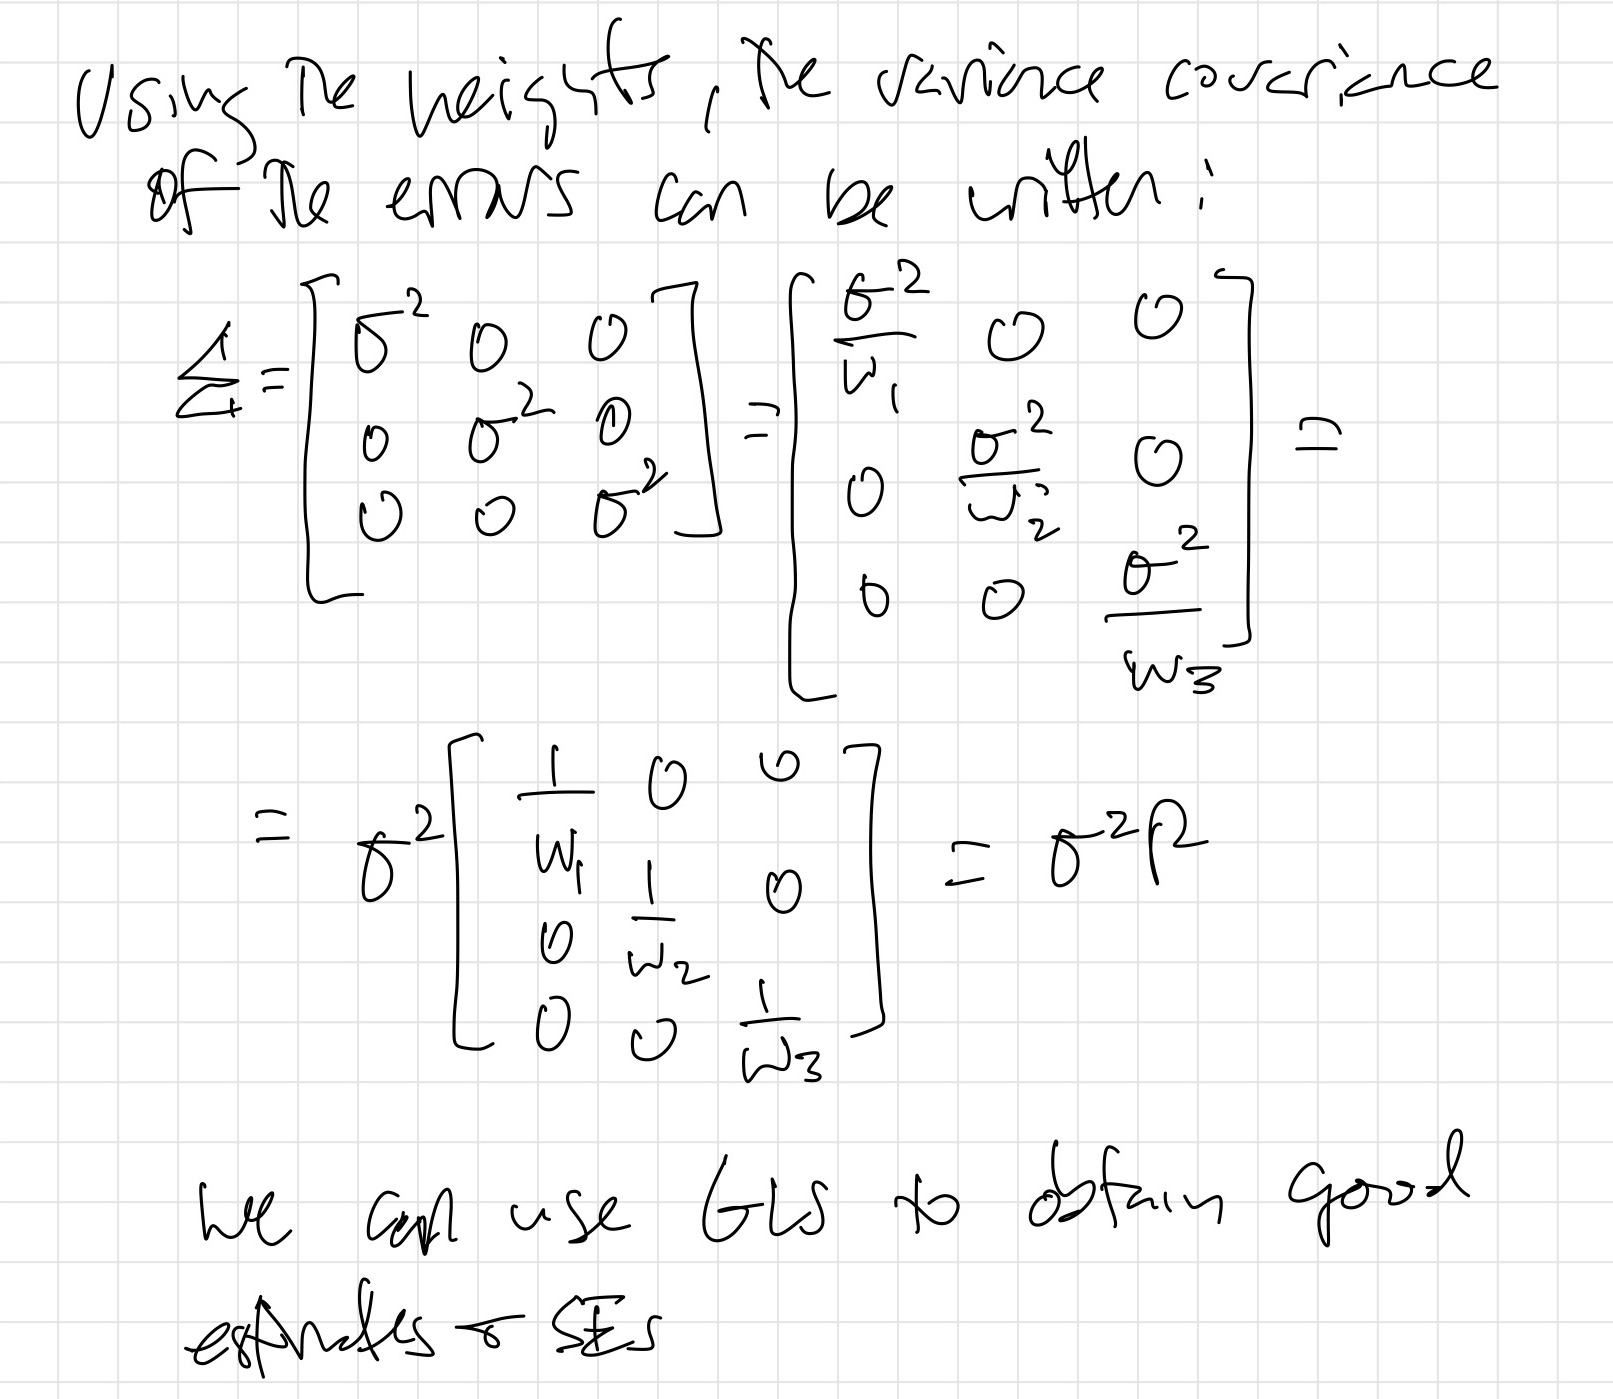 Using the weights, the variance covariance
of the errors can be written:
Σ = [ σ² 0 0 ; 0 σ² 0 ; 0 0 σ² ] = [ σ²/w₁ 0 0 ; 0 σ²/w₂ 0 ; 0 0 σ²/w₃ ] =
= σ² [ 1/w₁ 0 0 ; 0 1/w₂ 0 ; 0 0 1/w₃ ] = σ²P
we can use GLS to obtain good
estimates σ SEs